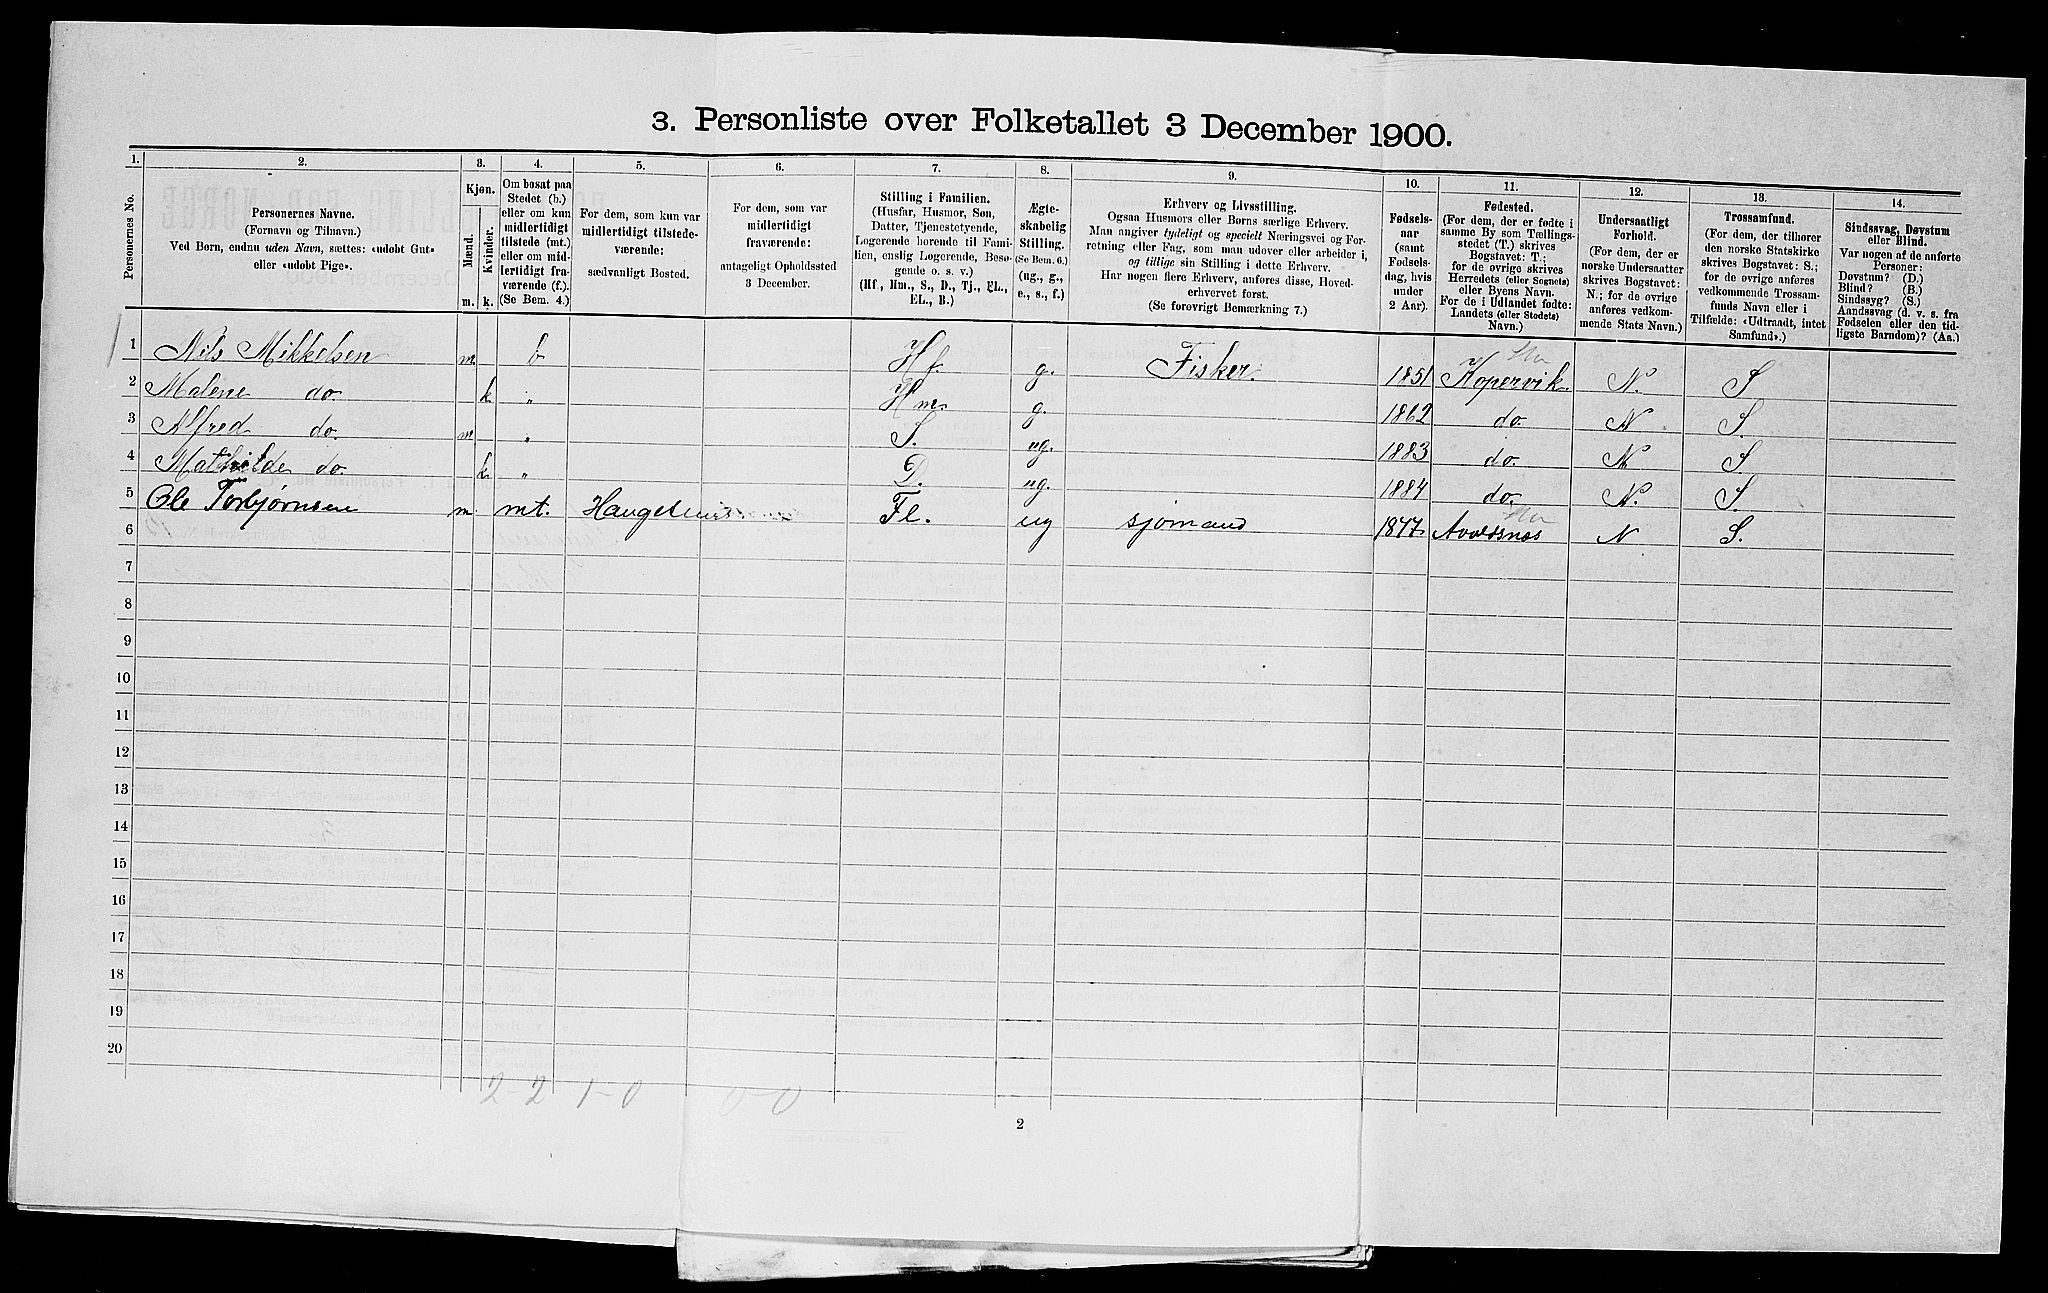 3. Personliste over Folketallet 3 December 1900.
1. 2. 3. 4. 5. 6. 7. 8. 9. 10. 11. 12. 13. 14.
Personernes No.
Personernes Navne.
(Fornavn og Tilnavn.)
Ved Børn, endnu uden Navn, sættes: «udøbt Gut»
eller «udøbt Pige».
Kjøn.
Mænd.
Kvinder.
m. k.
Om bosat paa
Stedet (b.)
eller om kun
midlertidigt
tilstede (mt.)
eller om mid-
lertidigt fra-
værende (f.).
(Se Bem. 4.)
For dem, som kun var
midlertidigt tilstede-
værende:
sædvanligt Bosted.
For dem, som var
midlertidigt
fraværende:
antageligt Opholdssted
3 December.
Stilling i Familien.
(Husfar, Husmor, Søn,
Datter, Tjenestetyende,
Logerende hørende til Fami-
lien, enslig Logerende, Besø-
gende o. s. v.)
(Hf., Hm., S., D., Tj., FL.,
EL., B.)
Ægte-
skabelig
Stilling.
(Se Bem. 6.)
(ug., g.,
e., s., f.)
Erhverv og Livsstilling.
Ogsaa Husmors eller Børns særlige Erhverv.
Man angiver tydeligt og specielt Næringsvei og For-
retning eller Fag, som man udøver eller arbeider i,
og tillige sin Stilling i dette Erhverv.
Har nogen flere Erhverv, anføres disse, Hoved-
erhvervet først.
(Se forøvrigt Bemærkning 7.)
Fødsels-
aar
(samt
Fødsels-
dag, hvis
under
2 Aar).
Fødested.
(For dem, der er fødte i
samme By som Tællings-
stedet (T.) skrives
Bogstavet: T.;
for de øvrige skrives
Herredets (eller Sognets)
eller Byens Navn.
For de i Udlandet fødte:
Landets (eller Stedets)
Navn.)
Undersaatligt
Forhold.
(For dem, der er
norske Undersaatter
skrives Bogstavet:
N.; for de øvrige
anføres vedkom-
mende Stats Navn.)
Trossamfund.
(For dem, der tilhører
den norske Statskirke
skrives Bogstavet: S.;
for de øvrige anføres
vedkommende Trossam-
funds Navn eller i
Tilfælde: «Udtraadt, intet
Samfund».)
Sindssvag, Døvstum
eller Blind.
Var nogen af de anførte
Personer:
Døvstum? (D.)
Blind? (B.)
Sindssyg? (S.)
Aandssvag (d. v. s. fra
Fødselen eller den tid-
ligste Barndom)? (Aa.)
1 Nils Mikkelsen m b Hf. g. Fisker. 1851 Kopervik. N. S
2 Malene do. k " Hm. g. 1862 do N S.
3 Alfred do. m " S. ug. 1883 do. N S
4 Mathilde do. k " D. ug. 1884 do. N. S.
5 Ole Torbjørnsen m. mt. Haugesund Fl. ug sjømand 1847 Avaldsnes N S.
6
7
8
9
10
11
12
13
14
15
16
17
18
19
20
2-2 1-0 0-0
2